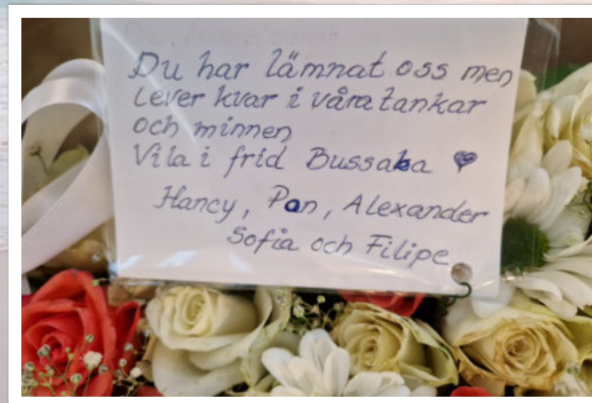 Du har lämnat oss men
lever kvar i våra tankar
och minnen
Vila i frid Bussaba
Hancy, Pon, Alexander
Sofia och Filipe